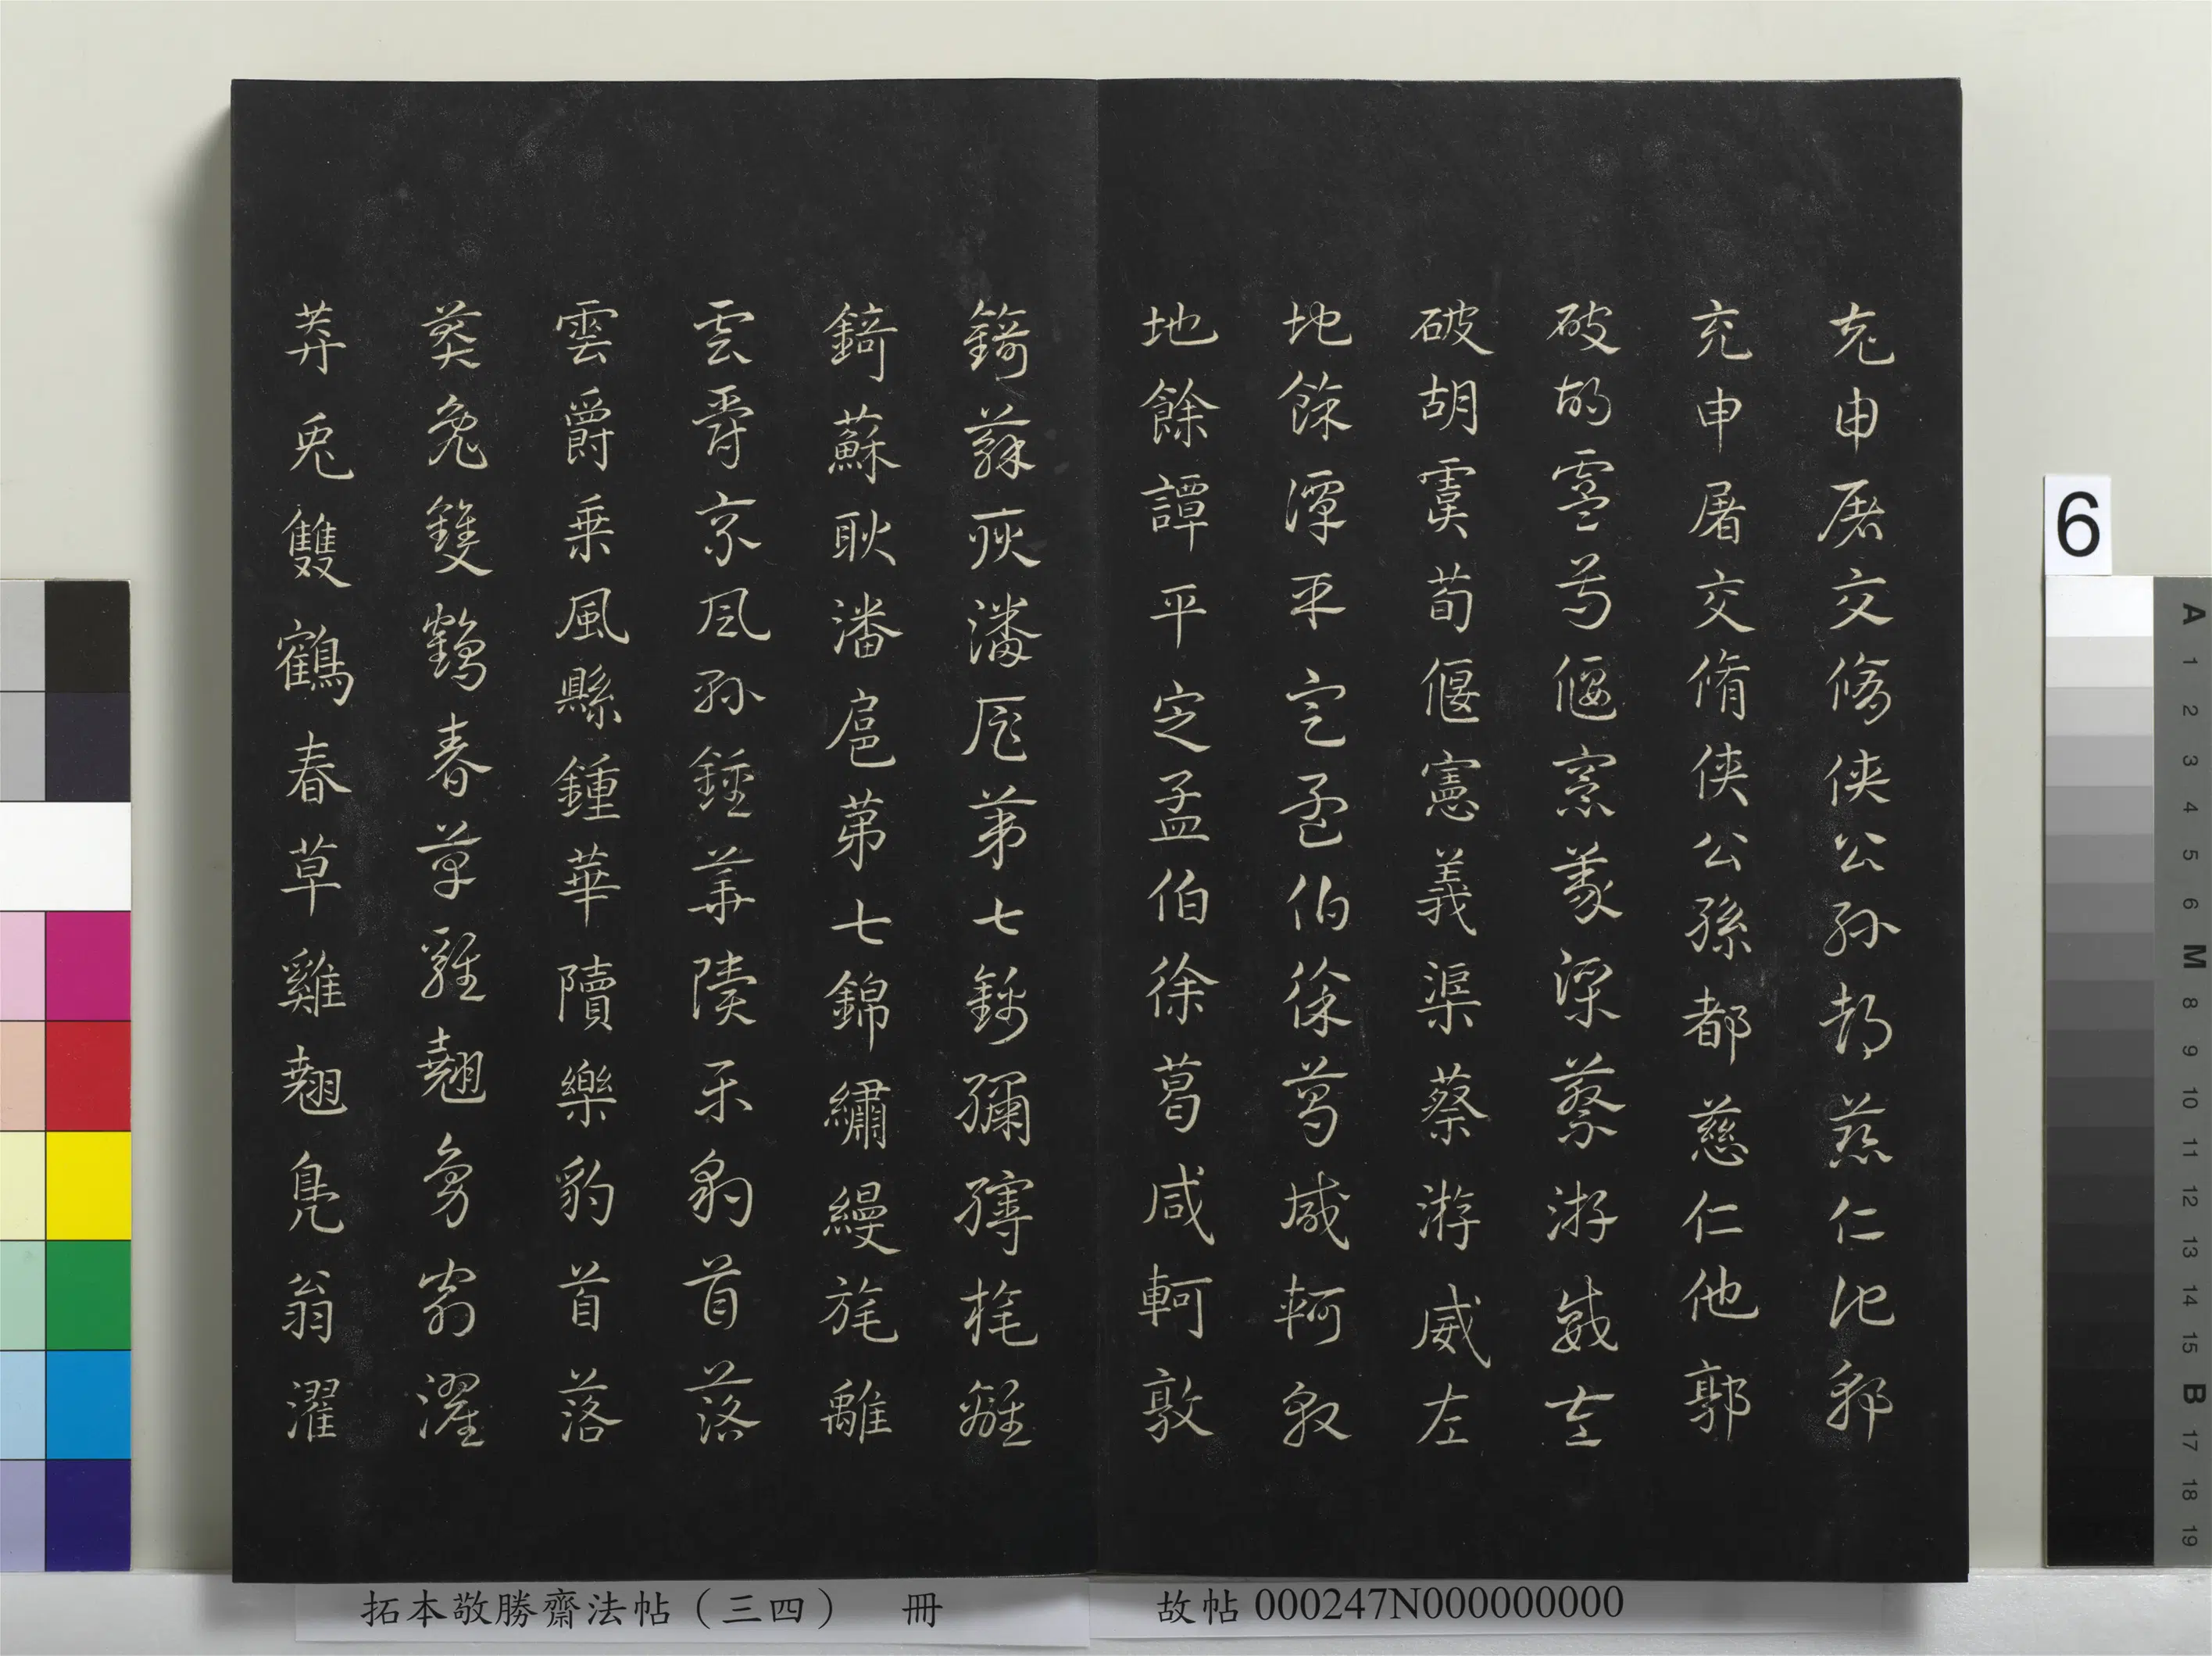 充申屠交脩俠公孫都慈仁他郭
充申屠交脩俠公孫都慈仁他郭
破胡虞荀偃憲義渠蔡游威左
破胡虞荀偃憲義渠蔡游威左
地餘譚平定孟伯徐葛咸軻敦
地餘譚平定孟伯徐葛咸軻敦
錡蘇耿潘扈苐七錦繡縵旄離
錡蘇耿潘扈苐七錦繡縵旄離
雲爵乘風孫鍾華隤樂豹首落
雲爵乘風縣鍾華隤樂豹首落
莽兔雙鶴春草雞翹鳧翁濯
莽兔雙鶴春草雞翹鳧翁濯
拓本敬勝齋法帖（三四） 冊
故帖 000247N000000000
6
A 1 2 3 4 5 6 M 8 9 10 11 12 13 14 15 B 17 18 19